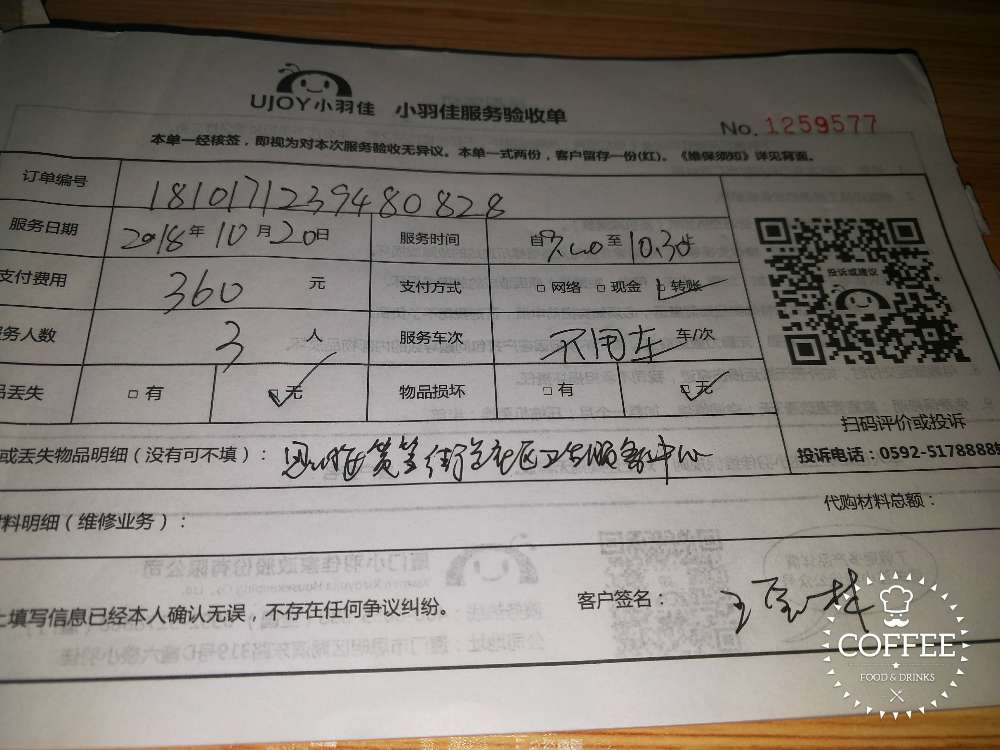 UJOY小羽佳 小羽佳服务验收单
No. 1259577
本单一经核签，即视为对本次服务验收无异议。本单一式两份，客户留存一份(红)。《维保须知》详见背面。
订单编号 1810171239480828
服务日期 2018年10月20日 服务时间 自9:00至10:30
支付费用 360 元 支付方式 □ 网络 □ 现金 □ 转账
投诉或建议
务人数 3 人 服务车次 不用车 车/次
品丢失 □ 有 □ 无 物品损坏 □ 有 □ 无
扫码评价或投诉
或丢失物品明细（没有可不填）： 街道社区卫生服务中心
投诉电话：0592-5178888
代购材料总额：
料明细（维修业务）：
上填写信息已经本人确认无误，不存在任何争议纠纷。 客户签名：
COFFEE
FOOD & DRINKS